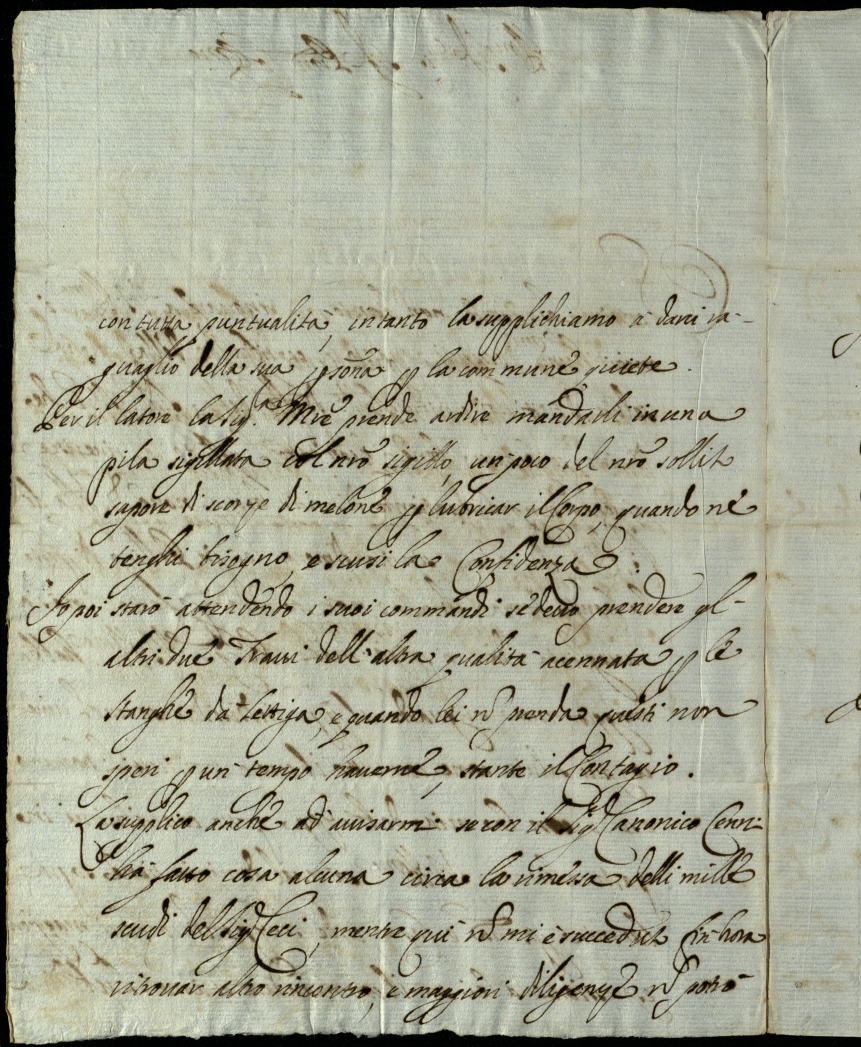 con tutta puntualità, intanto la supplichiamo à darci ra-
guaglio della sua psona p la commune quiete.
Per il latore la Sig.ª Mre prende ardire mandarli in una
pila sigillata col nro sigillo, un poco del nro sollit
sapore di scorze di melone p lubricar il Corpo, quando ne
tenghi bisogno, e scusi la Confidenza.
Io poi starò attendendo i suoi commandi se devo prendere gl-
altri due Travi dell'altra qualità acennata p le
stanghe da lettiga, e quando lei nō prenda questi non
speri p un tempo haverne, stante il Contagio.
La supplico anche ad avisarmi se con il Sig Canonico Cenni
ha fatto cosa alcuna circa la rimessa delli mille
scudi del Sig Ceci, mentre qui nō mi è succedut fin hora
ritrovar altro rincontro, e maggiori diligenze nō potrò